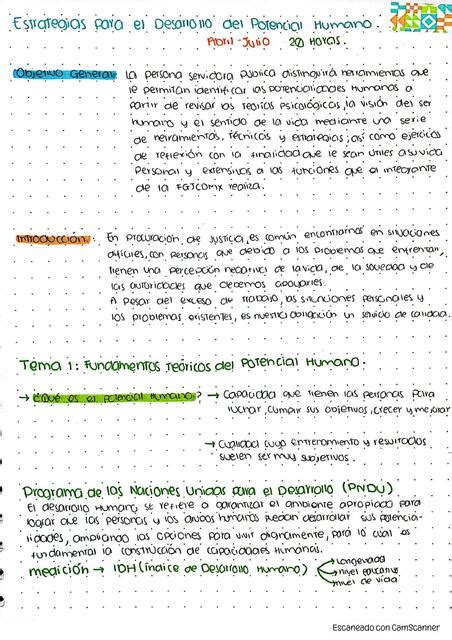 Estrategias para el Desarrollo del Potencial Humano.
Abril-Julio 20 Horas.
Objetivo General: La persona servidora pública distinguirá herramientas que
le permitan identificar las potencialidades humanas a
partir de revisar las teorías psicológicas, la visión del ser
humano y el sentido de la vida mediante una serie
de herramientas, técnicas y estrategias; así como ejercicios
de reflexión con la finalidad que le sean útiles a su vida
personal y extensivos a las funciones que el integrante
de la FGJCDMX realiza.
Introducción: En procuración de justicia, es común encontrarnos en situaciones
difíciles, con personas que debido a los problemas que enfrentan,
tienen una percepción negativa de la vida, de la sociedad y de
las autoridades que debemos apoyarles.
A pesar del exceso de trabajo, las situaciones personales y
los problemas existentes, es nuestra obligación un servicio de calidad.
Tema 1: Fundamentos Teóricos del Potencial Humano.
→ ¿Qué es el potencial humano? → Capacidad que tienen las personas para
luchar, cumplir sus objetivos, crecer y mejorar
→ Cualidad cuyo entrenamiento y resultados
suelen ser muy subjetivos.
Programa de las Naciones Unidas para el Desarrollo (PNDU)
El desarrollo humano se refiere a garantizar el ambiente apropiado para
lograr que las personas y los grupos humanos puedan desarrollar sus potencia-
lidades, ampliando las opciones para vivir dignamente, para lo cual es
fundamental la construcción de capacidades humanas.
medición → IDH (Índice de Desarrollo Humano)
Longevidad
nivel educativo
nivel de vida
Escaneado con CamScanner